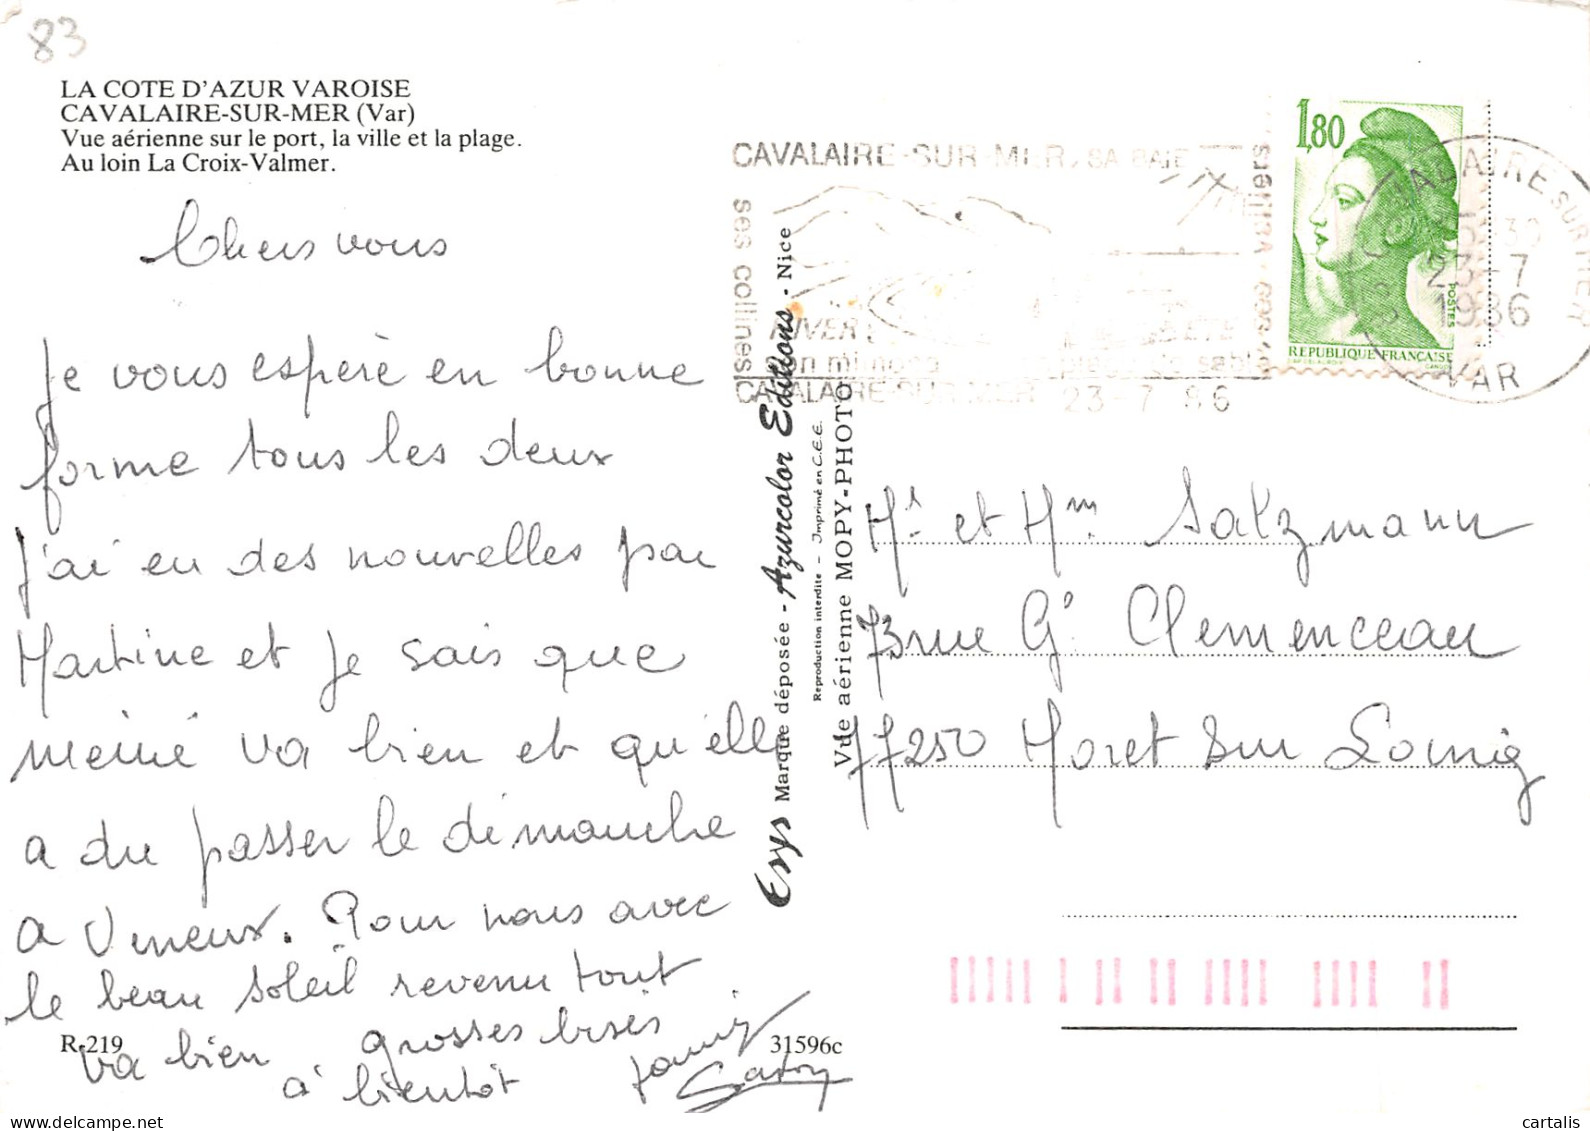 83
LA COTE D'AZUR VAROISE
CAVALAIRE-SUR-MER (Var)
Vue aérienne sur le port, la ville et la plage.
Au loin La Croix-Valmer.
Chers vous
Je vous espère en bonne
forme tous les deux
J'ai eu des nouvelles par
Martine et je sais que
mémé va bien et qu'elle
a du passer le dimanche
a Veneux. Pour nous avec
le beau soleil revenu tout
va bien grosses bises
à bientôt
R-219
31596c
Esys Marque déposée - Azurcolor Editions - Nice
Reproduction interdite - Imprimé en C.E.E.
Vue aérienne MOPY-PHOTO
CAVALAIRE-SUR-MER, SA BAIE
ses collines
HIVER ETE
son mimosa sable
CAVALAIRE-SUR-MER 23-7 86
1,80
POSTES
REPUBLIQUE FRANÇAISE
CAVALAIRE SUR MER
23-7
1986
VAR
Mr et Mm Saltzmann
73 rue Gs Clemenceau
77250 Moret Sur Loing